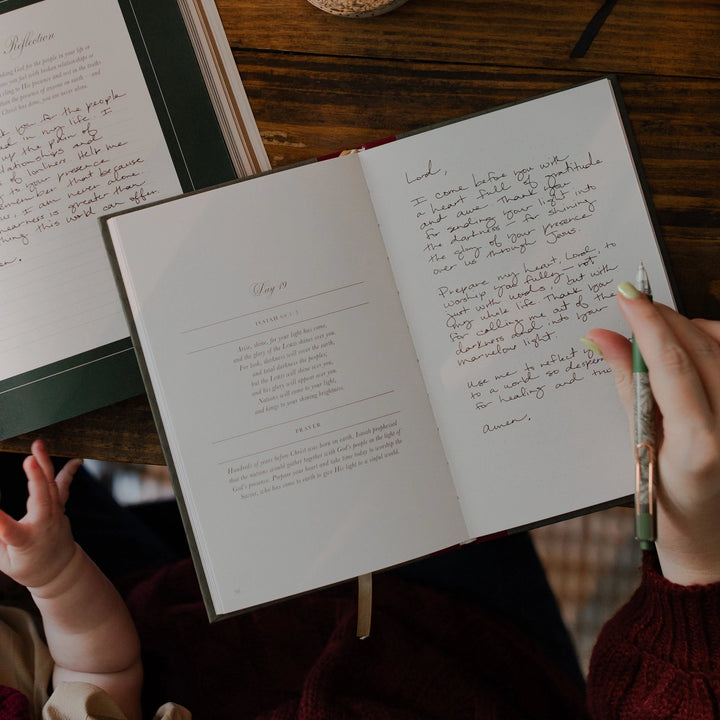 Reflection
for the people in your life or
Christ has done, you are never alone.
for the people
in my life. I
up the pain of
relationships and
of loneliness. Help me
to your presence
remember that because
I am never alone.
nearness is greater than
thing this world can offer.
Day 19
ISAIAH 60:1-3
Arise, shine, for your light has come,
and the glory of the LORD shines over you.
For look, darkness will cover the earth,
and total darkness the peoples;
but the LORD will shine over you,
and his glory will appear over you.
Nations will come to your light,
and kings to your shining brightness.
PRAYER
Hundreds of years before Christ was born on earth, Isaiah prophesied
that the nations would gather together with God's people in the light of
God's presence. Prepare your heart and take time today to worship the
Savior, who has come to earth to give His light to a sinful world.
Lord,
I come before you with
a heart full of gratitude
and awe. Thank you
for sending your light into
the darkness – for shining
the glory of your presence
over us through Jesus.
Prepare my heart, Lord, to
worship you fully – not
just with words but with
my whole life. Thank you
for calling me out of the
darkness and into your
marvelous light.
Use me to reflect
to a world so
for healing and
amen.